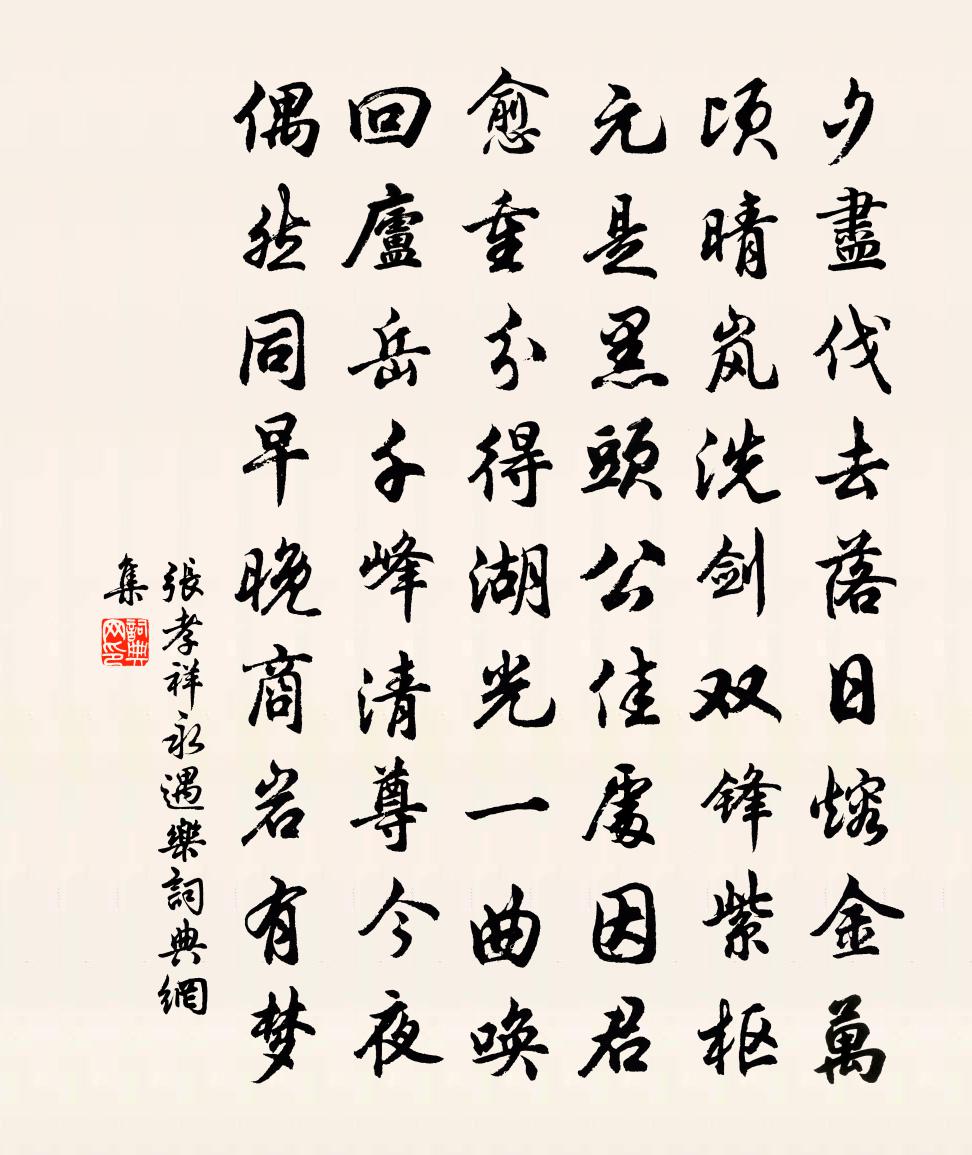 夕盡伐去落日熔金萬
頃晴岚洗剑双锋紫枢
元是黑頭公佳處因君
愈重分得湖光一曲唤
回廬岳千峰清尊今夜
偶然同早晚商岩有梦
張孝祥永遇樂詞典網
集
詞典网印